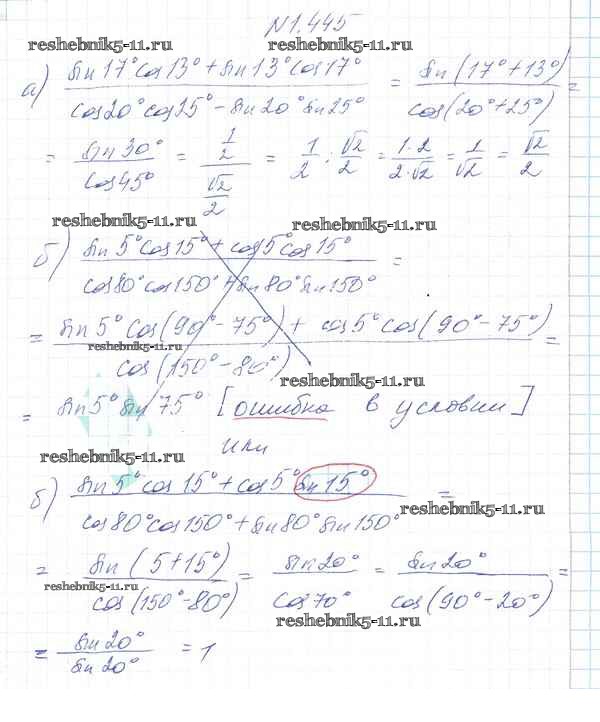 N1.445
reshebnik5-11.ru reshebnik5-11.ru
а) (sin 17° cos 13° + sin 13° cos 17°) / (cos 20° cos 25° − sin 20° sin 25°) = sin(17° + 13°) / cos(20° + 25°) =
= sin 30° / cos 45° = (1/2) / (√2/2) = 1/2 : √2/2 = 1·2 / 2·√2 = 1/√2 = √2/2
reshebnik5-11.ru reshebnik5-11.ru
б) (sin 5° cos 15° + cos 5° cos 15°) / (cos 80° cos 150° + sin 80° sin 150°) =
= (sin 5° cos(90° − 75°) + cos 5° cos(90° − 75°)) / cos(150° − 80°) =
reshebnik5-11.ru
reshebnik5-11.ru
= sin 5° sin 75° [ошибка в условии]
или
reshebnik5-11.ru
б) (sin 5° cos 15° + cos 5° sin 15°) / (cos 80° cos 150° + sin 80° sin 150°) =
reshebnik5-11.ru
= sin(5 + 15°) / cos(150° − 80°) = sin 20° / cos 70° = sin 20° / cos(90° − 20°) =
reshebnik5-11.ru
reshebnik5-11.ru
= sin 20° / sin 20° = 1